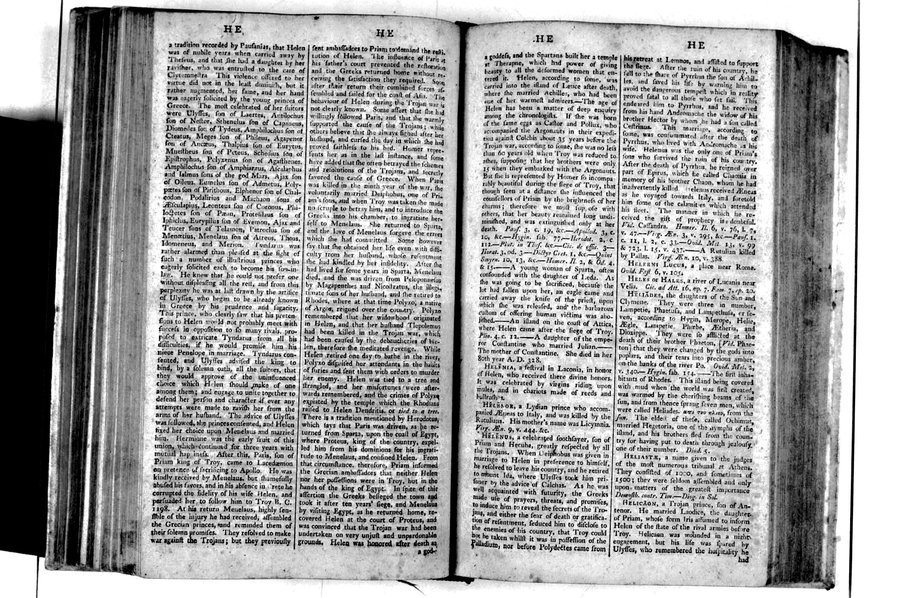 HE
HE
a tradition recorded by Pausanias, that Helen
was of nubile years when carried away by
Theseus, and that she had a daughter by her
ravisher, who was entrusted to the care of
Clytemnestra. This violence offered to her
virtue did not in the least diminish, but it
rather augmented, her fame, and her hand
was eagerly solicited by the young princes of
Greece. The most celebrated of her suitors
were Ulysses, son of Laertes, Antilochus
son of Nestor, Sthenelus son of Capaneus,
Diomedes son of Tydeus, Amphilochus son of
Cteatus, Meges son of Phileus, Agapenor
son of Ancæus, Thalpius son of Eurytus,
Mnestheus son of Peteus, Schedius son of
Epistrophus, Polyxenus son of Agasthenes,
Amphilochus son of Amphiaraus, Ascalaphus
and Ialmus sons of the god Mars, Ajax son
of Oileus, Eumelus son of Admetus, Poly-
pœtes son of Pirithous, Elphenor son of Chal-
codon, Podalirius and Machaon sons of
Æsculapius, Leonteus son of Coronus, Phi-
loctetes son of Pœan, Protesilaus son of
Iphiclus, Eurypilus son of Evemon, Ajax and
Teucer sons of Telamon, Patroclus son of
Menœtius, Menelaus son of Atreus, Thoas,
Idomeneus, and Merion. Tyndarus was
rather alarmed than pleased at the sight of
such a number of illustrious princes who
eagerly solicited each to become his son-in-
law. He knew that he could not prefer one
without displeasing all the rest, and from this
perplexity he was at last drawn by the artifice
of Ulysses, who began to be already known
in Greece by his prudence and sagacity.
This prince, who clearly saw that his preten-
sions to Helen would not probably meet with
success in opposition to so many rivals, pro-
posed to extricate Tyndarus from all his
difficulties, if he would promise him his
niece Penelope in marriage. Tyndarus con-
sented, and Ulysses advised the king to
bind, by a solemn oath, all the suitors, that
they would approve of the uninfluenced
choice which Helen should make of one
among them; and engage to unite together to
defend her person and character if ever any
attempts were made to ravish her from the
arms of her husband. The advice of Ulysses
was followed, the princes consented, and Helen
fixed her choice upon Menelaus and married
him. Hermione was the early fruit of this
union, which continued for three years with
mutual happiness. After this, Paris, son of
Priam king of Troy, came to Lacedæmon
on pretence of sacrificing to Apollo. He was
kindly received by Menelaus, but shamefully
abused his favors, and in his absence in Crete he
corrupted the fidelity of his wife Helen, and
persuaded her to follow him to Troy B. C.
1198. At his return Menelaus, highly sen-
sible of the injury he had received, assembled
the Grecian princes, and reminded them of
their solemn promises. They resolved to make
war against the Trojans; but they previously
sent ambassadors to Priam to demand the resti-
tution of Helen. The influence of Paris at
his father's court prevented the restoration,
and the Greeks returned home without re-
ceiving the satisfaction they required. Soon
after their return their combined forces as-
sembled and sailed for the coast of Asia. The
behaviour of Helen during the Trojan war is
not clearly known. Some assert that she had
willingly followed Paris, and that she warmly
supported the cause of the Trojans; while
others believe that she always sighed after her
husband, and cursed the day in which she had
proved faithless to his bed. Homer repre-
sents her as in the last instance, and some
have added that she often betrayed the schemes
and resolutions of the Trojans, and secretly
favored the cause of Greece. When Paris
was killed in the ninth year of the war, she
voluntarily married Deiphobus, one of Pri-
am's sons, and when Troy was taken she made
no scruple to betray him, and to introduce the
Greeks into his chamber, to ingratiate her-
self to Menelaus. She returned to Sparta,
and the love of Menelaus forgave the errors
which she had committed. Some however
say that she obtained her life even with diffi-
culty from her husband, whose resentment
she had kindled by her infidelity. After she
had lived for some years in Sparta, Menelaus
died, and she was driven from Peloponnesus
by Magapenthes and Nicostratus, the illegi-
timate sons of her husband, and she retired to
Rhodes, where at that time Polyxo, a native
of Argos, reigned over the country. Polyxo
remembered that her widowhood originated
in Helen, and that her husband Tlepolemus
had been killed in the Trojan war, which
had been caused by the debaucheries of He-
len, therefore she meditated revenge. While
Helen retired one day to bathe in the river,
Polyxo disguised her attendants in the habits
of furies and sent them with orders to murder
her enemy. Helen was tied to a tree and
strangled, and her misfortunes were after-
wards remembered, and the crimes of Polyxo
expiated by the temple which the Rhodians
raised to Helen Dendritis, or tied to a tree.
There is a tradition mentioned by Herodotus,
which says that Paris was driven, as he re-
turned from Sparta, upon the coast of Egypt,
where Proteus, king of the country, expel-
led him from his dominions for his ingrati-
tude to Menelaus, and confined Helen. From
that circumstance, therefore, Priam informed
the Grecian ambassadors that neither Helen
nor her possessions were in Troy, but in the
hands of the king of Egypt. In spite of this
assertion the Greeks besieged the town and
took it after ten years' siege, and Menelaus
by visiting Egypt, as he returned home, re-
covered Helen at the court of Proteus, and
was convinced that the Trojan war had been
undertaken on very unjust and unpardonable
grounds. Helen was honored after death as
a god-
HE
HE
a goddess, and the Spartans built her a temple
at Therapne, which had power of giving
beauty to all the deformed women that en-
tered it. Helen, according to some, was
carried into the island of Leuce after death,
where she married Achilles, who had been
one of her warmest admirers.—The age of
Helen has been a matter of deep enquiry
among the chronologists. If she was born
of the same eggs as Castor and Pollux, who
accompanied the Argonauts in their expedi-
tion against Colchis about 35 years before the
Trojan war, according to some, she was no less
than 60 years old when Troy was reduced to
ashes, supposing that her brothers were only
15 when they embarked with the Argonauts.
But she is represented by Homer so incompa-
rably beautiful during the siege of Troy, that
though seen at a distance she influenced the
counsellors of Priam by the brightness of her
charms; therefore we must suppose with
others, that her beauty remained long undi-
minished, and was extinguished only at her
death. Paus. 3, c. 19, &c.—Apollod. 3, c.
10, &c.—Hygin. fab. 77.—Herodot. 2, c.
112.—Plut. in Thes. &c.—Cic. de offic. 3.—
Horat. 3, od. 3.—Dictys Cret. 1, &c.—Quint.
Smyrn. 10, 13, &c.—Homer. Il. 2, & Od. 4
& 15.—A young woman of Sparta, often
confounded with the daughter of Leda. As
she was going to be sacrificed, because the
lot had fallen upon her, an eagle came and
carried away the knife of the priest, upon
which she was released, and the barbarous
custom of offering human victims was abo-
lished.—An island on the coast of Attica,
where Helen came after the siege of Troy.
Plin. 4, c. 12.—A daughter of the empe-
ror Constantine who married Julian.—
The mother of Constantine. She died in her
80th year A. D. 328.
HELĔNIA, a festival in Laconia, in honor
of Helen, who received there divine honors.
It was celebrated by virgins riding upon
mules, and in chariots made of reeds and
bullrushes.
HELĔNOR, a Lydian prince who accom-
panied Æneas to Italy, and was killed by the
Rutulians. His mother's name was Licymnia.
Virg. Æn. 9, v. 444, &c.
HELĔNUS, a celebrated soothsayer, son of
Priam and Hecuba, greatly respected by all
the Trojans. When Deiphobus was given in
marriage to Helen in preference to himself,
he resolved to leave his country, and he retired
to mount Ida, where Ulysses took him pri-
soner by the advice of Calchas. As he was
well acquainted with futurity, the Greeks
made use of prayers, threats, and promises,
to induce him to reveal the secrets of the Tro-
jans, and either the fear of death or gratifica-
tion of resentment, seduced him to disclose to
the enemies of his country, that Troy could
not be taken whilst it was in possession of the
Palladium, nor before Polydectes came from
his retreat at Lemnos, and assisted to support
the siege. After the ruin of his country, he
fell to the share of Pyrrhus the son of Achil-
les, and saved his life by warning him to
avoid the dangerous tempest which in reality
proved fatal to all those who set sail. This
endeared him to Pyrrhus, and he received
from his hand Andromache the widow of his
brother Hector, by whom he had a son called
Cestrinus. This marriage, according to
some, was consummated after the death of
Pyrrhus, who lived with Andromache as his
wife. Helenus was the only one of Priam's
sons who survived the ruin of his country.
After the death of Pyrrhus, he reigned over
part of Epirus, which he called Chaonia in
memory of his brother Chaon, whom he had
inadvertently killed. Helenus received Æneas
as he voyaged towards Italy, and foretold
him some of the calamities which attended
his fleet. The manner in which he re-
ceived the gift of prophecy is doubtful.
Vid. Cassandra. Homer. Il. 6, v. 76, l. 7,
v. 47.—Virg. Æn. 3, v. 295, &c.—Paus. 1,
c. 11, l. 2, c. 33.—Ovid. Met. 13, v. 99
& 723, l. 15, v. 437.—A Rutulian killed
by Pallas. Virg. Æn. 10, v. 388.
HELERNI LUCUS, a place near Rome.
Ovid. Fast. 6, v. 105.
HELES or HALES, a river of Lucania near
Velia. Cic. ad Att. 16, ep. 7. Fam. 7, ep. 20.
HĒLIĂDES, the daughters of the Sun and
Clymene. They were three in number,
Lampetie, Phaetusa, and Lampethusa, or se-
ven, according to Hygin, Merope, Helie,
Ægle, Lampetie, Phœbe, Ætheria, and
Dioxippe. They were so afflicted at the
death of their brother Phæton, [Vid. Phæ-
ton] that they were changed by the gods into
poplars, and their tears into precious amber,
on the banks of the river Po. Ovid. Met. 2,
v. 340.—Hygin. fab. 154.—The first inha-
bitants of Rhodes. This island being covered
with mud when the world was first created,
was warmed by the cherishing beams of the
sun, and from thence sprang seven men, which
were called Heliades, απο του ηλιου, from the
sun. The eldest of these, called Ochimus,
married Hegetoria, one of the nymphs of the
island, and his brothers fled from the coun-
try for having put to death through jealousy
one of their number. Diod. 5.
HELIASTÆ, a name given to the judges
of the most numerous tribunal at Athens.
They consisted of 1000, and sometimes of
1500; they were seldom assembled and only
upon matters of the greatest importance
Demosth. contr. Tim.—Diog. in Sol.
HELICĀON, a Trojan prince, son of An-
tenor. He married Laodice, the daughter
of Priam, whose form Iris assumed to inform
Helen of the state of the rival armies before
Troy. Helicaon was wounded in a night
engagement, but his life was spared by
Ulysses, who remembered the hospitality he
had